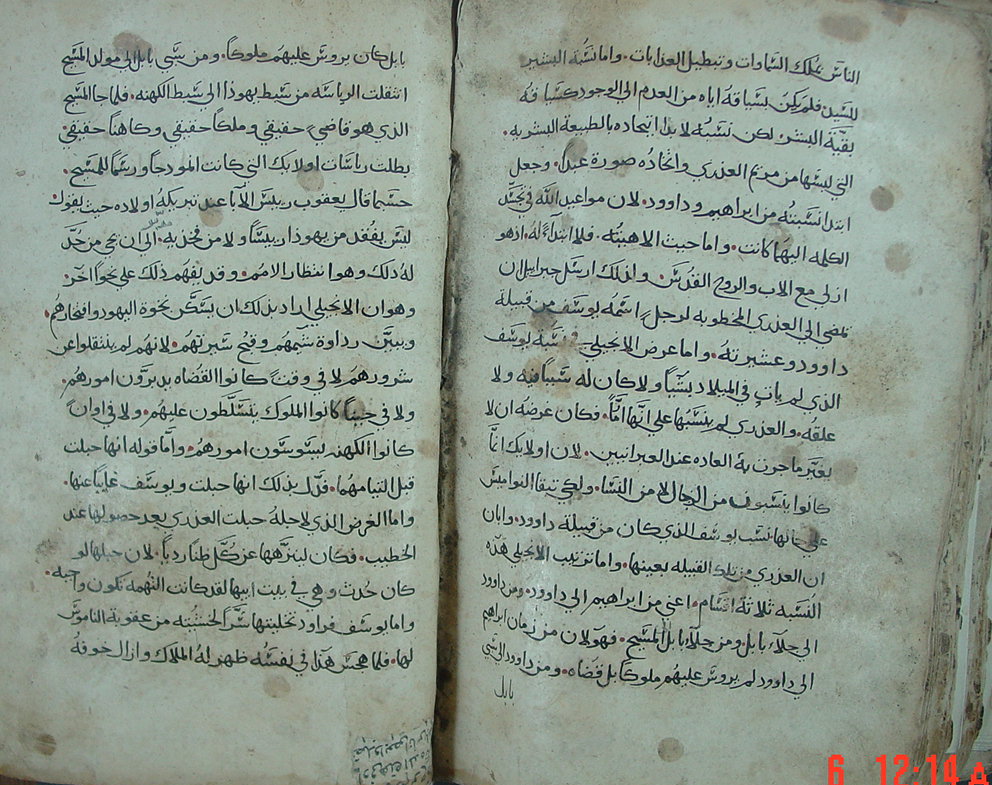 الناس ملك السماوات وتبطيل العذابات. واما نسبة البشير
للسيد فلم يكن لسباقه اياه من العدم الى الوجود كسباقه
بقية البشر لكن نسبه لابدا اتحاده بالطبيعة البشريه.
التي لبسها من مريم العذري واتخاذه صورة عبدا. وجعل
ابتدا نسبته من ابراهيم وداوود. لان مواعيد الله في تجسد
الكلمه اليهما كانت. واما حيث الاهيته. فلا ابتداء له. اذ هو
ازلي مع الاب والروح القدس. واذلك ارسل جبراييل ان
تمضي الى العذري المخطوبه لرجل اسمه يوسف من قبيلة
داوود وعشيرته. واما عرض الانجيلي نسبه يوسف
الذي لم يات في الميلاد بشيا ولا كان له سببا فيه ولا
علقه. والعذري لم ينسبها على انها امًا. فكان غرضه ان لا
يغير ما جرت به العاده عند العبرانيين. لان اولايك انما
كانوا ينسبون من الرجال لا من النسا. ولكي تبقا النواميس
على حالها نسب يوسف الذي كان من قبيلة داوود. وابان
ان العذري من تلك القبيله بعينها. واما ترتيب الانجيلي هذه
النسبه ثلاثة اقسام. اعني من ابراهيم الى داوود. ومن داوود
الى جلاء بابل ومن جلاء بابل المسيح. فهو لان من زمان ابراهيم
الى داوود لم يروس عليهم ملوكا بل قضاه. ومن داوود الى سبي
بابل
بابل كان يروس عليهم ملوكاً. ومن سبي بابل الى مولد المسيح
انتقلت الرياسه من سبط يهوذا الى سبط الكهنه. فلما جا المسيح
الذي هو قاضي حقيقي وملكاً حقيقي وكاهناً حقيقي.
بطلت رياسات اولايك التي كانت انموذجاً ورسماً للمسيح.
حسما قال يعقوب رييس الابا عند تبريكه اولاده حيث يقول
ليس يفقد من يهوذا رييسًا ولا من فخذيه. الى ان يجي من
له ذلك وهو انتظار الامم. وقد يفهم ذلك على نحوًا اخر
وهو ان الانجيلي اراد بذلك ان يسكن نخوة اليهود وافتخارهم
ويبين رداوة شيمهم وقبح سيرتهم. لانهم لم ينتقلوا عن
شرورهم لا في وقت كانوا القضاه يدبرون امورهم.
ولا في حيناً كانوا الملوك يتسلطون عليهم. ولا في اوان
كانوا الكهنه يسوسون امورهم. واما قوله انها حبلت
قبل التيامهما. فدل بذلك انها حبلت ويوسف غايبًا عنها.
واما الغرض الذي لاجله حبلت العذري بعد حصولها عند
الخطيب. فكان لينزهها عن كل ظناً رديا. لان حبلها لو
كان حدث وهي في بيت ابيها لقد كانت التهمه تكون واجبه.
واما يوسف فراود تخليتها سراً لخشيته من عقوبة الناموس
لها. فلما هجس هذا في نفسه ظهر له الملاك وازال خوفه
6 12:14 A